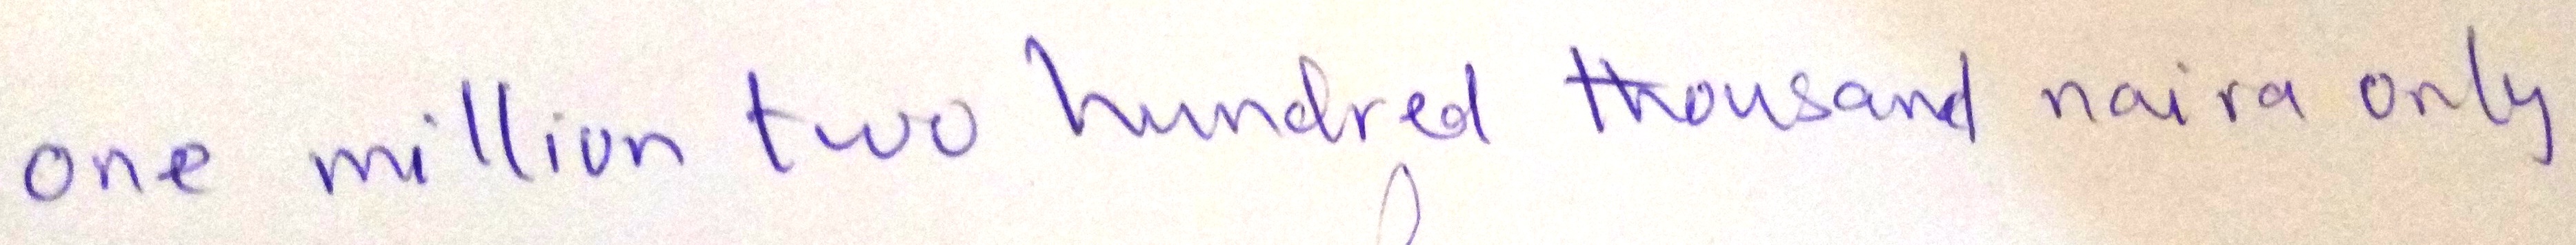 one million two hundred thousand naira only